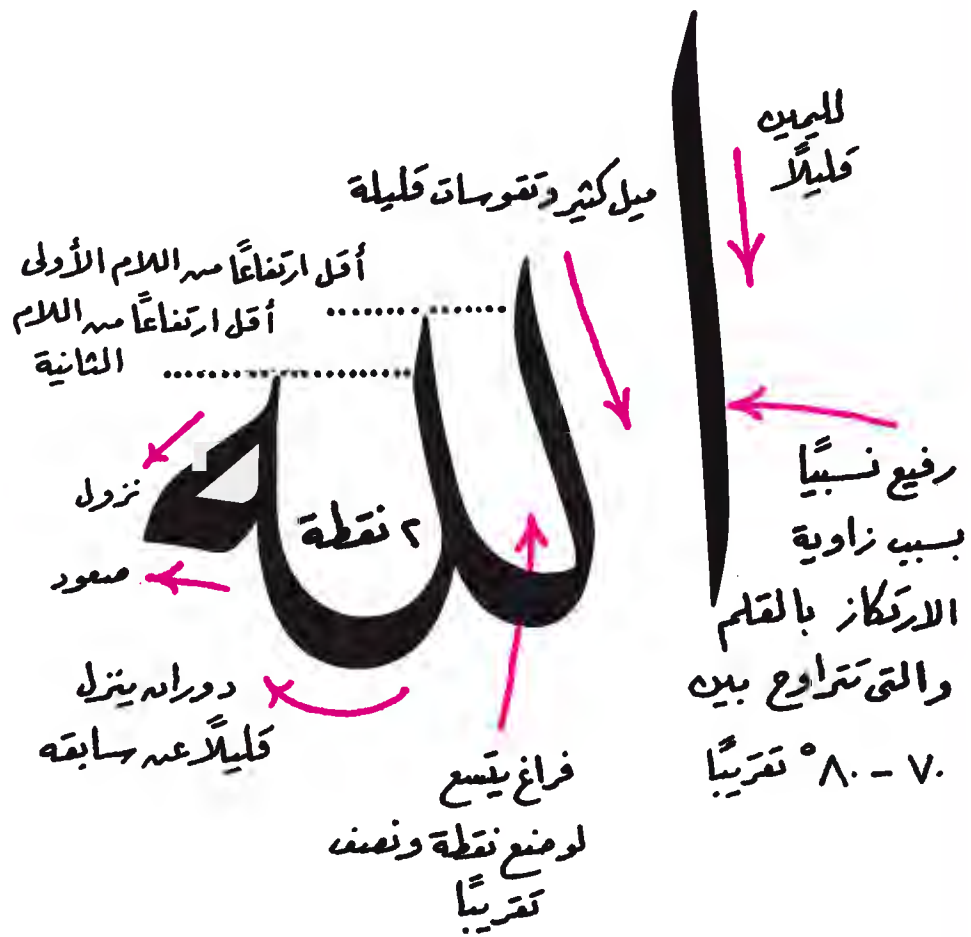 الله
لليمين
قليلًا
ميل كثير وتقوسات قليلة
أقل ارتفاعًا من اللام الأولى
أقل ارتفاعًا من اللام
الثانية
رفيع نسبيًا
بسبب زاوية
الارتكاز بالقلم
والتي تتراوح بين
٧٠ - ٨٠° تقريبًا
نزول
٢ نقطة
صعود
دوران ينزل
قليلًا عن سابقه
فراغ يتسع
لوضع نقطة ونصف
تقريبًا